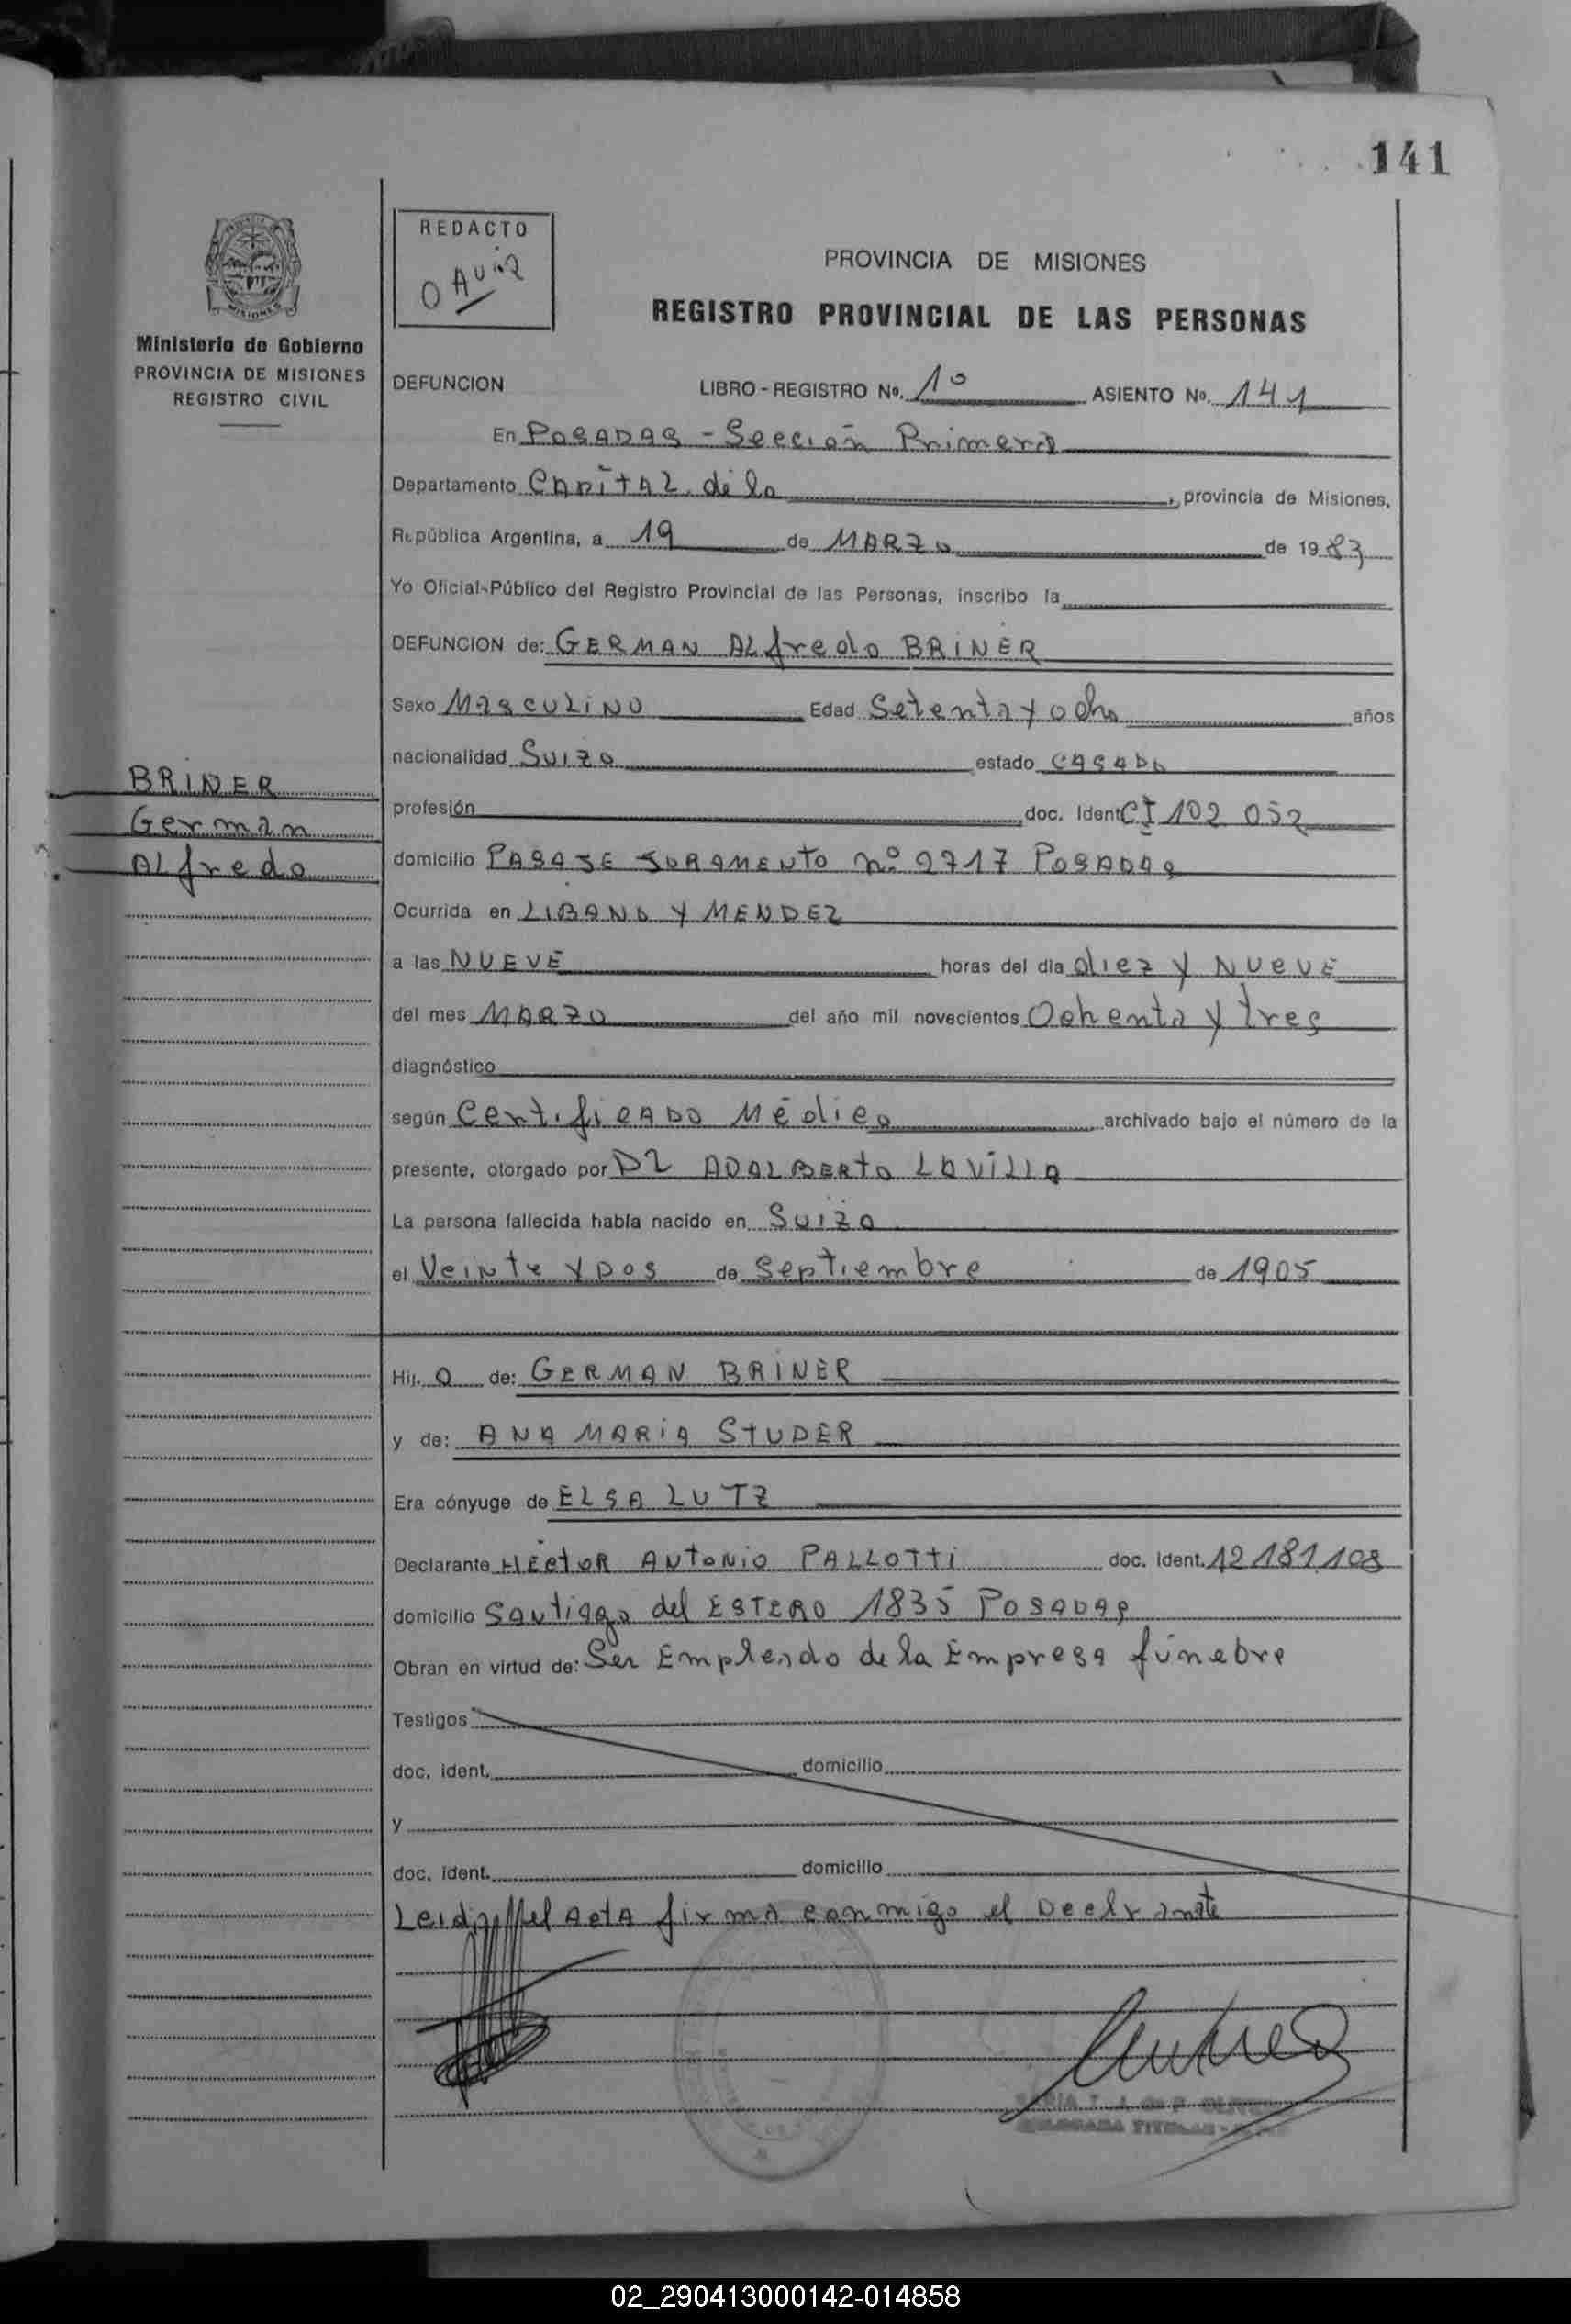 141
REDACTO
PROVINCIA DE MISIONES
REGISTRO PROVINCIAL DE LAS PERSONAS
Ministerio de Gobierno
PROVINCIA DE MISIONES
REGISTRO CIVIL
DEFUNCION LIBRO - REGISTRO No. 1º ASIENTO No. 141
En POSADAS - Sección Primera
Departamento CAPITAL de la , provincia de Misiones,
República Argentina, a 19 de MARZO de 1983
Yo Oficial Público del Registro Provincial de las Personas, inscribo la
DEFUNCION de: GERMAN ALfredo BRINER
Sexo MASCULINO Edad Setenta y ocho años
nacionalidad SUIZO estado CASADO
BRINER
German
ALfredo
profesión doc. Ident CI 102 052
domicilio PASAJE JURAMENTO nº 2717 POSADAS
Ocurrida en LIBANO Y MENDEZ
a las NUEVE horas del día diez y NUEVE
del mes MARZO del año mil novecientos Ochenta y tres
diagnóstico
según CertifiCADO Médico archivado bajo el número de la
presente, otorgado por ADALBERTO LAVILLA
La persona fallecida había nacido en Suiza
el Veinte y DOS de Septiembre de 1905
Hij o de: GERMAN BRINER
y de: ANA MARIA STUDER
Era cónyuge de ELSA LUTZ
Declarante HECTOR ANTONIO PALLOTTI doc. Ident. 12.181.108
domicilio SANTIAGO del ESTERO 1835 POSADAS
Obran en virtud de: Ser Empleado de la Empresa fúnebre
Testigos
doc. ident. domicilio
y
doc. ident. domicilio
Leida el ActA firma conmigo el
02_290413000142-014858